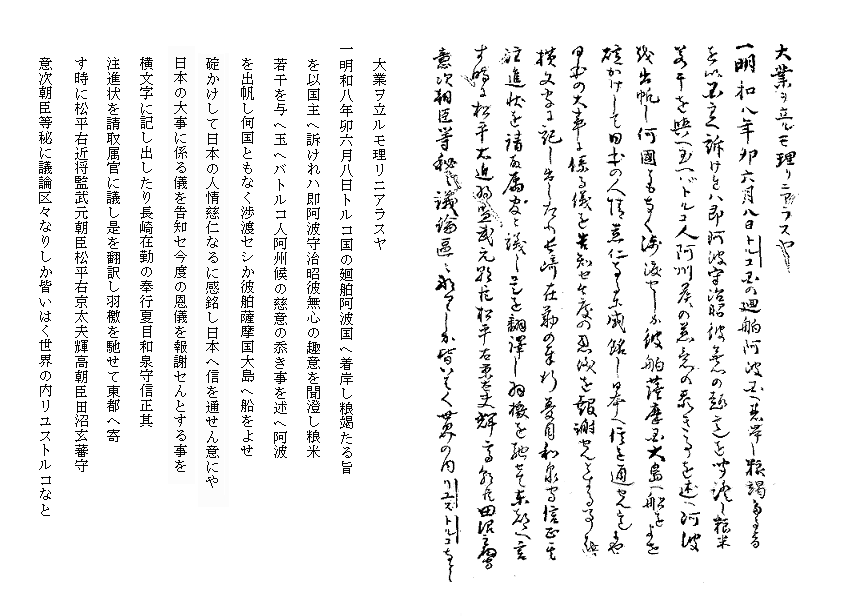 大業ヲ立ルモ理リニアラスヤ
一明和八年卯六月八日トルコ国の廻舶阿波国へ着岸し粮竭たる旨
を以国主へ訴けれハ即阿波守治昭彼無心の趣意を聞澄し粮米
若干を與へ玉へバトルコ人阿州侯の慈意の忝き事を述へ阿波
を出帆し何國ともなく渉渡セシか彼舶薩摩国大島へ船をよせ
碇かけして日本の人情慈仁なるに感銘し日本へ信を通せん意にや
日本の大事に係る儀を告知セ今度の恩儀を報謝セんとする事を
横文字に記し出したり長崎在勤の奉行夏目和泉守信正其
注進状を請取属官に議し是を翻訳し羽檄を馳せて東都へ寄
す時に松平右近将監武元朝臣松平右京太夫輝高朝臣田沼玄蕃守
意次朝臣等秘に議論區々なりしか皆いはく世界の内リユストルコなと
大業ヲ立ルモ理リニアラスヤ
一明和八年卯六月八日トルコ国の廻舶阿波国へ着岸し粮竭たる旨
を以国主へ訴けれハ即阿波守治昭彼無心の趣意を聞澄し粮米
若干を与へ玉へバトルコ人阿州候の慈意の忝き事を述へ阿波
を出帆し何国ともなく渉渡セシか彼舶薩摩国大島へ船をよせ
碇かけして日本の人情慈仁なるに感銘し日本へ信を通せん意にや
日本の大事に係る儀を告知セ今度の恩儀を報謝セんとする事を
横文字に記し出したり長崎在勤の奉行夏目和泉守信正其
注進状を請取属官に議し是を翻訳し羽檄を馳せて東都へ寄
す時に松平右近将監武元朝臣松平右京太夫輝高朝臣田沼玄蕃守
意次朝臣等秘に議論区々なりしか皆いはく世界の内リユストルコなと